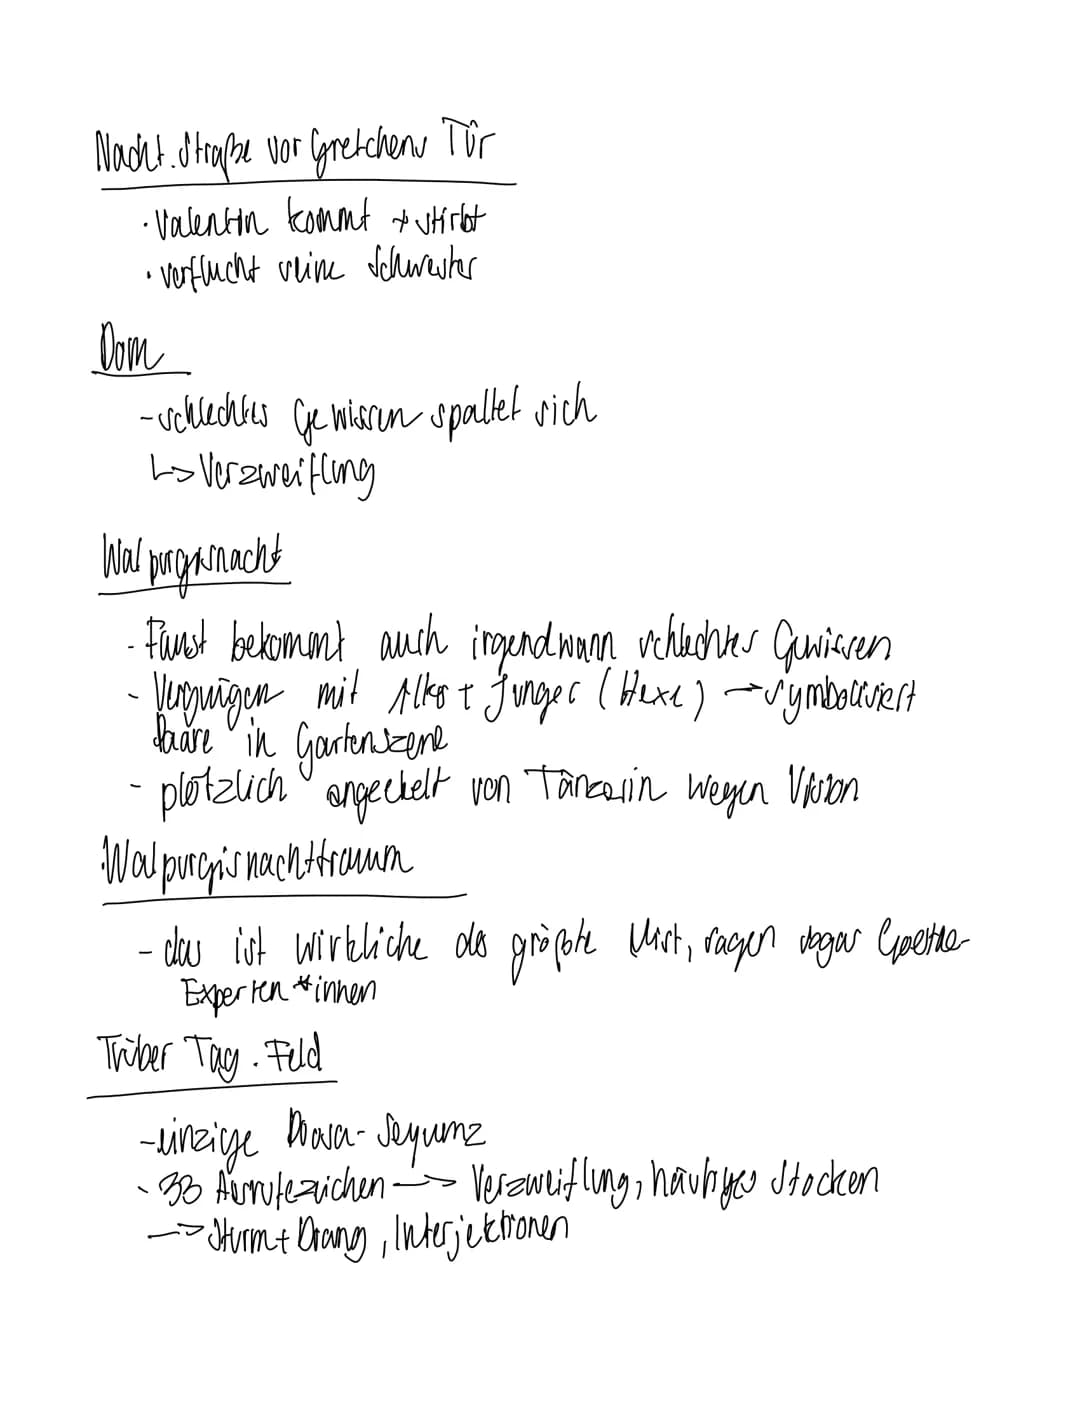 Nacht. Straße vor Gretchens Tür
· Valentin kommt + stirbt
· verflucht seine Schwester
Dom
- schlechtes Gewissen spaltet sich
↳ Verzweiflung
Walpurgisnacht
- Faust bekommt auch irgendwann schlechtes Gewissen
- Vergnügen mit Alk + Junger (Hexe) → symbolisiert
Paare in Gartenszene
- plötzlich angeekelt von Tänzerin wegen Vision
Walpurgisnachttraum
- das ist wirkliche das größte Mist, sagen sogar Goethe-
Experten*innen
Trüber Tag. Feld
- einzige Prosa-
- 33 Ausrufezeichen → Verzweiflung, häufiges Stocken
→ Sturm + Drang, Interjektionen